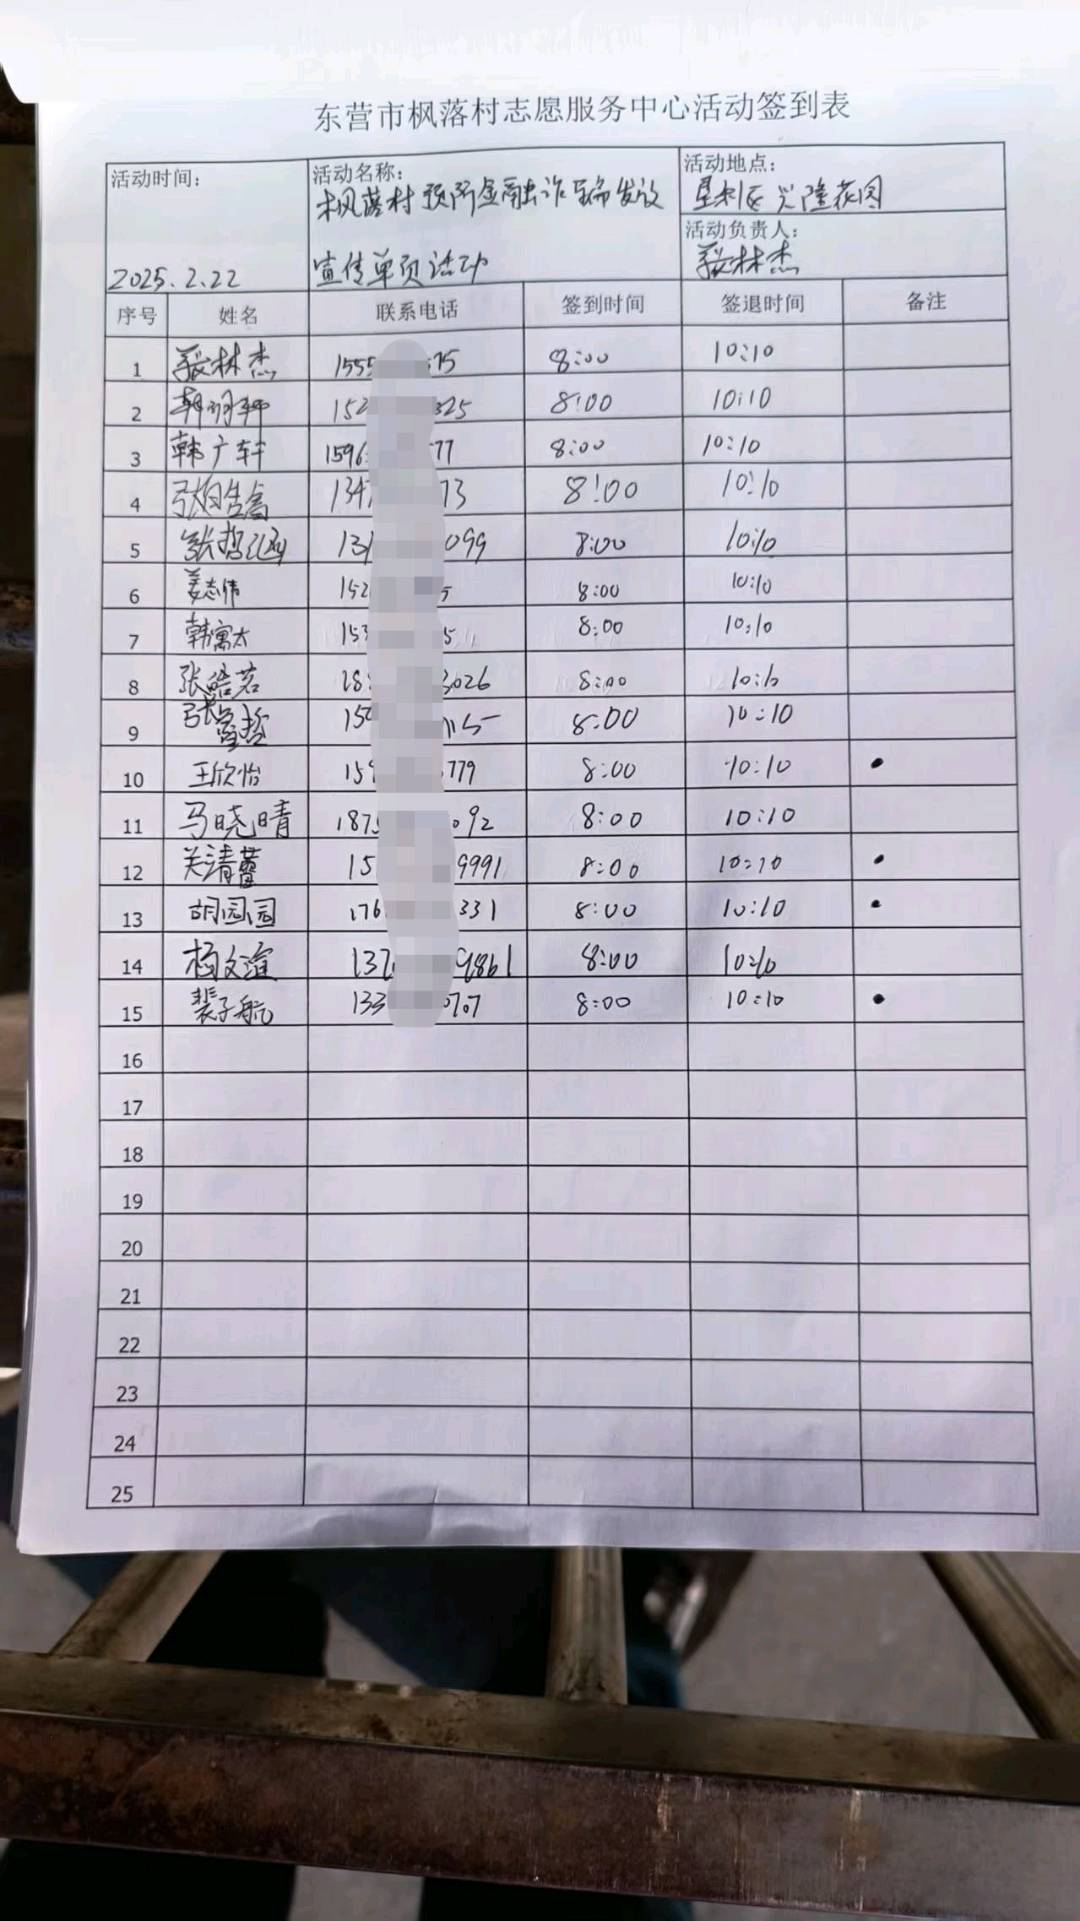 东营市枫落村志愿服务中心活动签到表
活动时间: 2025.2.22
活动名称: 枫落村预防金融诈骗发放
宣传单页活动
活动地点: 垦利区兴隆花园
活动负责人: 张林杰
序号 姓名 联系电话 签到时间 签退时间 备注
1 张林杰 1555 75 8:00 10:10
2 韩明轩 152 325 8:00 10:10
3 韩广轩 1596 77 8:00 10:10
4 1347 73 8:00 10:10
5 张哲涵 131 099 8:00 10:10
6 姜志伟 152 5 8:00 10:10
7 韩寓太 153 5 8:00 10:10
8 张皓茗 18 3026 8:00 10:10
9 张 哲 159 115 8:00 10:10
10 王欣怡 159 779 8:00 10:10 •
11 马晓晴 1875 092 8:00 10:10
12 关清蕾 15 9991 8:00 10:10 •
13 胡园园 176 331 8:00 10:10 •
14 杨文谊 137 9861 8:00 10:10
15 裴子航 133 0707 8:00 10:10 •
16
17
18
19
20
21
22
23
24
25